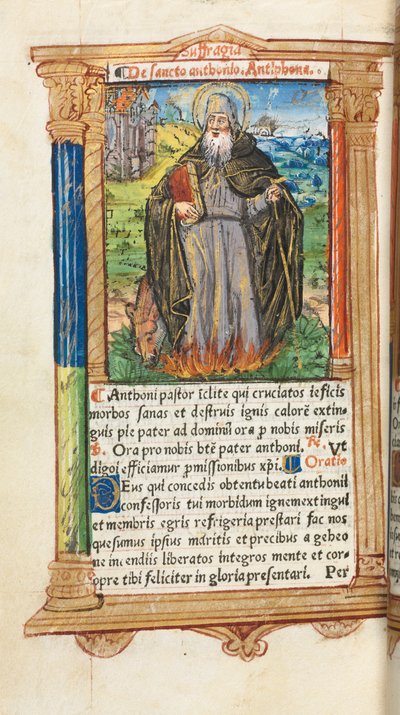 Suffragia
De sancto anthonio. Antiphona.
Anthoni pastor īclite qui cruciatos īeficis
morbos sanas et destruis ignis calorē extin-
guis pie pater ad dominū ora p nobis miseris
Ora pro nobis btē pater anthoni. ℟. Ut
digni efficiamur pmissionibus xpī. Oratio
Deus qui concedis obtentu beati anthonii
confessoris tui morbidum ignem extingui
et membris egris refrigeria prestari fac nos
quesumus ipsius maritis et precibus a gehen
ne incendiis liberatos integros mente et cor-
pore tibi feliciter in gloria presentari. Per